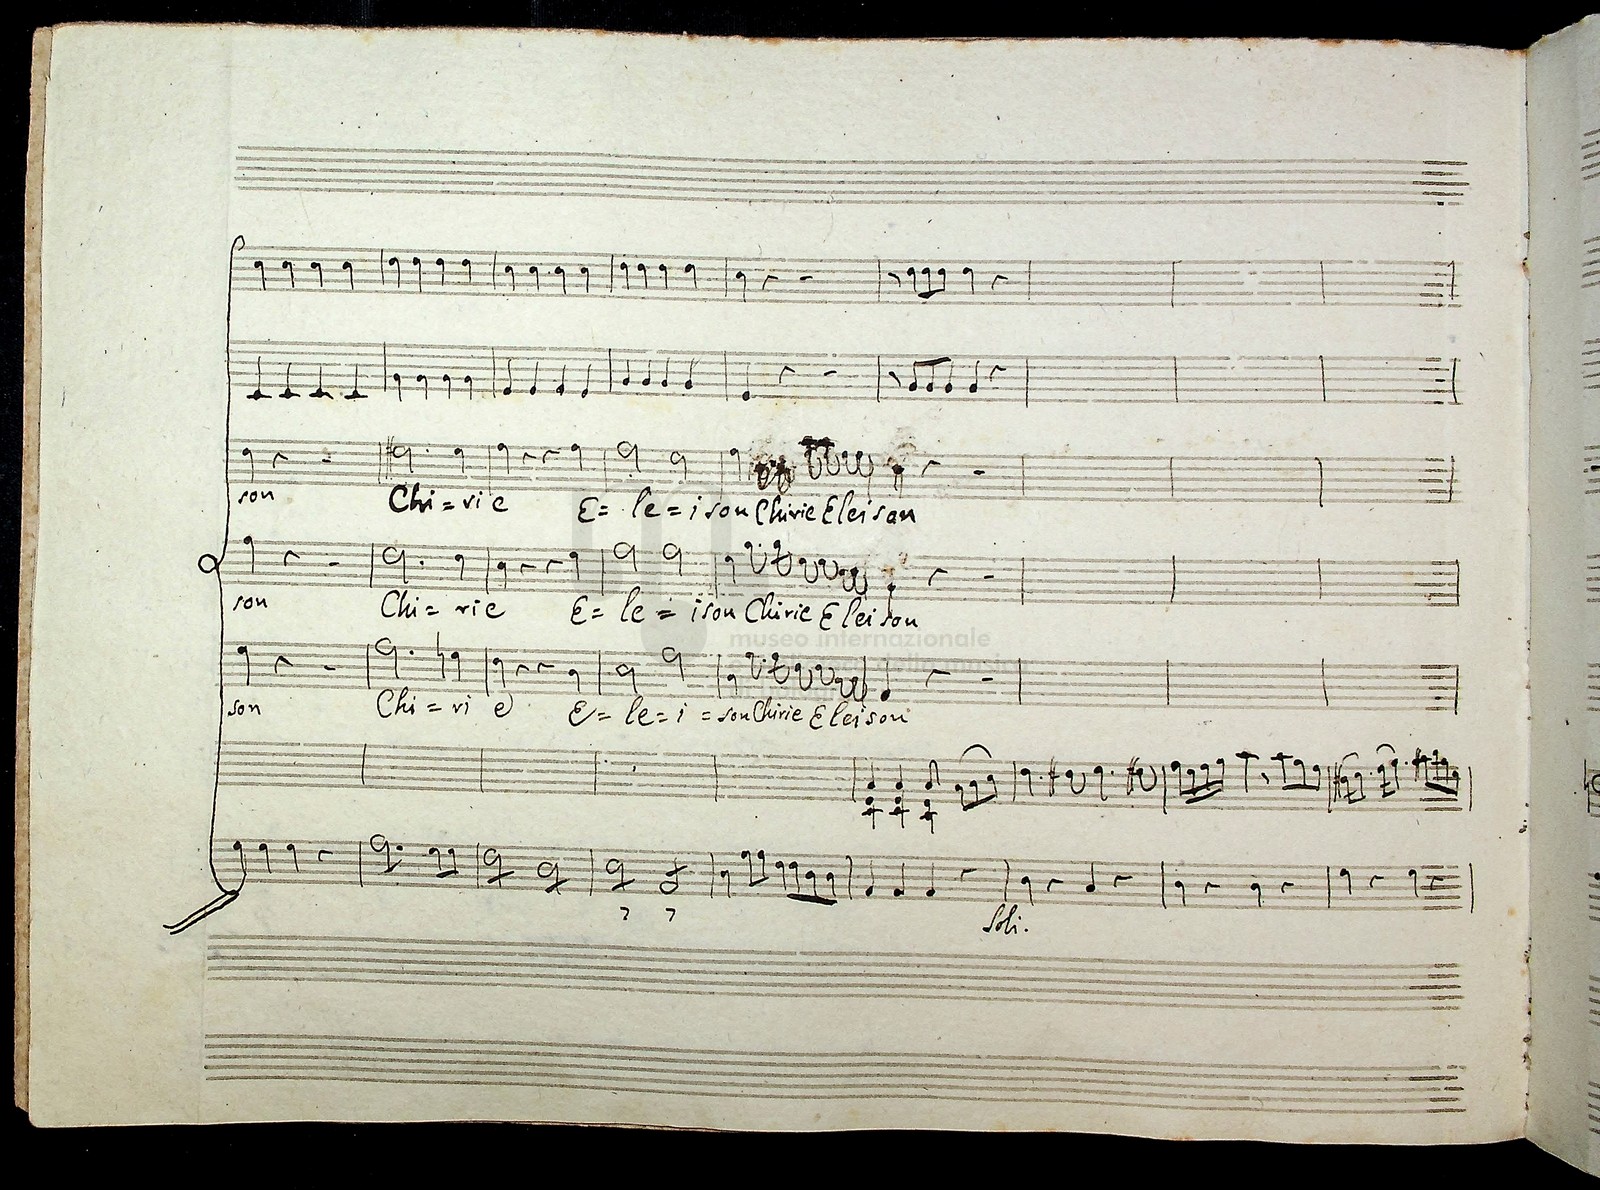 son Chi = rie E = le = ison Chirie Eleison
son Chi = rie E = le = ison Chirie Eleison
museo internazionale
son Chi = ri e E = le = i = son Chirie Eleison
7 7
Soli.